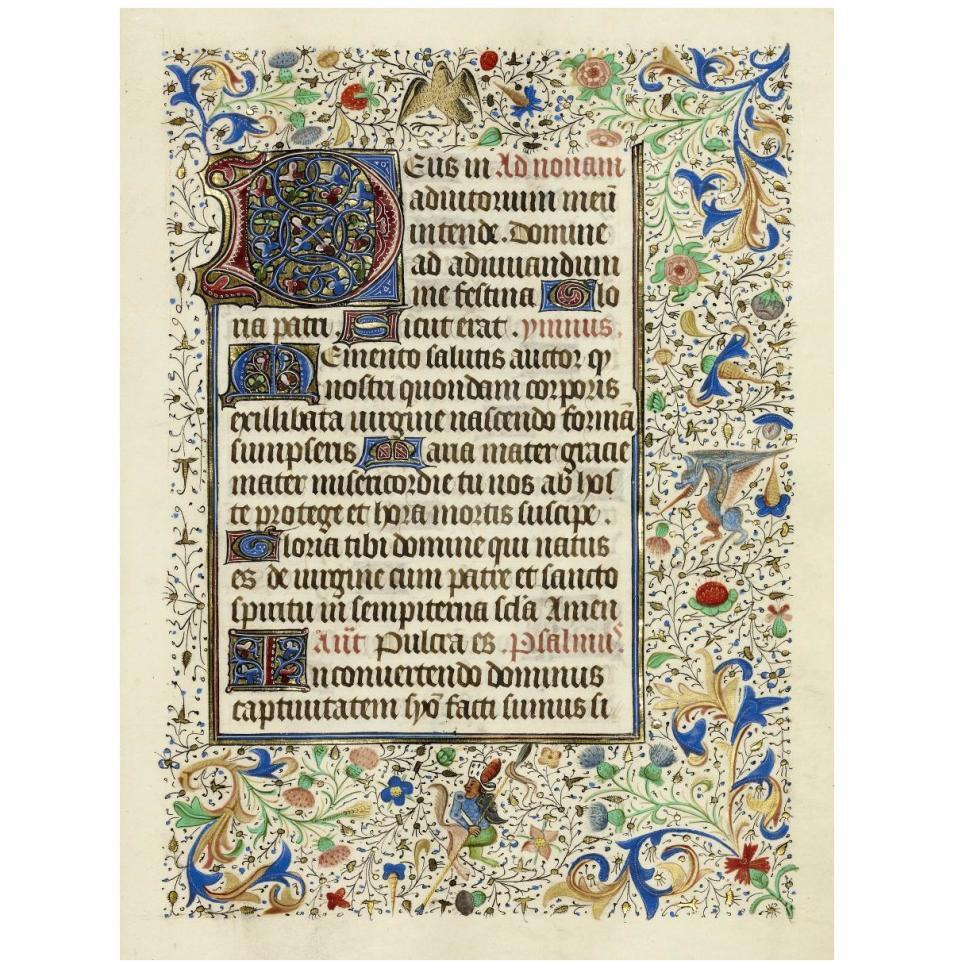 Deus in Ad nonam
adiutorium meū
intende. Domine
ad adiuuandum
me festina Glo
ria patri. Sicut erat. ymnus.
Memento salutis auctor qꝫ
nostri quondam corporis
ex illibata uirgine nascendo formā
sumpseris Maria mater gracie
mater misericordie tu nos ab hos
te protege et hora mortis suscipe.
Gloria tibi domine qui natus
es de uirgine cum patre et sancto
spiritu in sempiterna scl̄a Amen
Añt Pulcra es. Psalmus.
In conuertendo dominus
captiuitatem syō facti sumus si